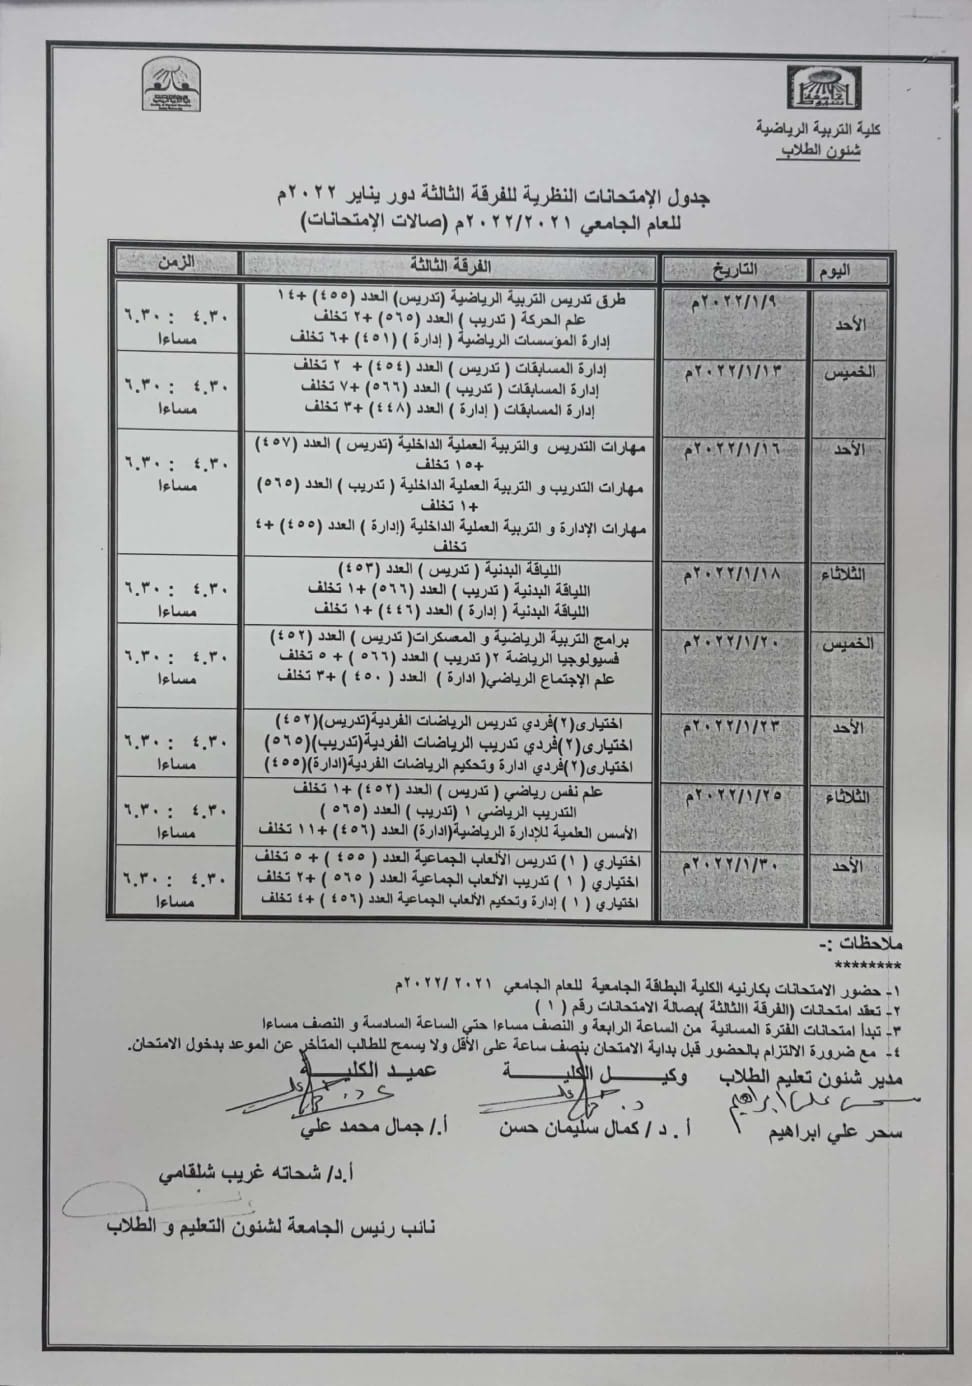 كلية التربية الرياضية
شئون الطلاب
جدول الإمتحانات النظرية للفرقة الثالثة دور يناير ٢٠٢٢م
للعام الجامعي ٢٠٢٢/٢٠٢١م (صالات الإمتحانات)
اليوم التاريخ الفرقة الثالثة الزمن
الأحد ٢٠٢٢/١/٩م طرق تدريس التربية الرياضية (تدريس) العدد (٤٥٥) +١٤
علم الحركة ( تدريب ) العدد (٥٦٥) +٢ تخلف
إدارة المؤسسات الرياضية ( إدارة ) (٤٥١) +٦ تخلف
٤.٣٠ : ٦.٣٠
مساءا
الخميس ٢٠٢٢/١/١٣م إدارة المسابقات ( تدريس ) العدد (٤٥٤) + ٢ تخلف
إدارة المسابقات ( تدريب ) العدد (٥٦٦) +٧ تخلف
إدارة المسابقات ( إدارة ) العدد (٤٤٨) +٣ تخلف
٤.٣٠ : ٦.٣٠
مساءا
الأحد ٢٠٢٢/١/١٦م مهارات التدريس والتربية العملية الداخلية (تدريس ) العدد (٤٥٧)
+١٥ تخلف
مهارات التدريب و التربية العملية الداخلية ( تدريب ) العدد (٥٦٥)
+١ تخلف
مهارات الإدارة و التربية العملية الداخلية (إدارة ) العدد (٤٥٥) +٤
تخلف
٤.٣٠ : ٦.٣٠
مساءا
الثلاثاء ٢٠٢٢/١/١٨م اللياقة البدنية ( تدريس ) العدد (٤٥٣)
اللياقة البدنية ( تدريب ) العدد (٥٦٦) +١ تخلف
اللياقة البدنية ( إدارة ) العدد (٤٤٦) +١ تخلف
٤.٣٠ : ٦.٣٠
مساءا
الخميس ٢٠٢٢/١/٢٠م برامج التربية الرياضية و المعسكرات( تدريس ) العدد (٤٥٢)
فسيولوجيا الرياضة ٢( تدريب ) العدد (٥٦٦ ) + ٥ تخلف
علم الإجتماع الرياضي( ادارة ) العدد ( ٤٥٠ ) +٣ تخلف
٤.٣٠ : ٦.٣٠
مساءا
الأحد ٢٠٢٢/١/٢٣م اختيارى(٢)فردي تدريس الرياضات الفردية(تدريس)(٤٥٢)
اختيارى(٢)فردي تدريب الرياضات الفردية(تدريب)(٥٦٥)
اختيارى(٢)فردي ادارة وتحكيم الرياضات الفردية(ادارة)(٤٥٥)
٤.٣٠ : ٦.٣٠
مساءا
الثلاثاء ٢٠٢٢/١/٢٥م علم نفس رياضي ( تدريس ) العدد (٤٥٢) +١ تخلف
التدريب الرياضي ١ (تدريب ) العدد (٥٦٥ )
الأسس العلمية للإدارة الرياضية(ادارة) العدد (٤٥٦) +١١ تخلف
٤.٣٠ : ٦.٣٠
مساءا
الأحد ٢٠٢٢/١/٣٠م اختياري ( ١) تدريس الألعاب الجماعية العدد ( ٤٥٥ ) + ٥ تخلف
اختياري ( ١ ) تدريب الألعاب الجماعية العدد ( ٥٦٥ ) +٢ تخلف
اختياري ( ١ ) إدارة وتحكيم الألعاب الجماعية العدد (٤٥٦ ) +٤ تخلف
٤.٣٠ : ٦.٣٠
مساءا
ملاحظات :-
********
١- حضور الامتحانات بكارنيه الكلية البطاقة الجامعية للعام الجامعي ٢٠٢١ /٢٠٢٢م
٢- تعقد امتحانات (الفرقة االثالثة )بصالة الامتحانات رقم ( ١ )
٣- تبدأ امتحانات الفترة المسائية من الساعة الرابعة و النصف مساءا حتى الساعة السادسة و النصف مساءا
٤- مع ضرورة الالتزام بالحضور قبل بداية الامتحان بنصف ساعة على الأقل ولا يسمح للطالب المتأخر عن الموعد بدخول الامتحان.
مدير شئون تعليم الطلاب وكيل الكلية عميد الكلية
سحر علي ابراهيم
سحر علي ابراهيم أ . د / كمال سليمان حسن أ./ جمال محمد علي
أ.د/ شحاته غريب شلقامي
نائب رئيس الجامعة لشئون التعليم و الطلاب